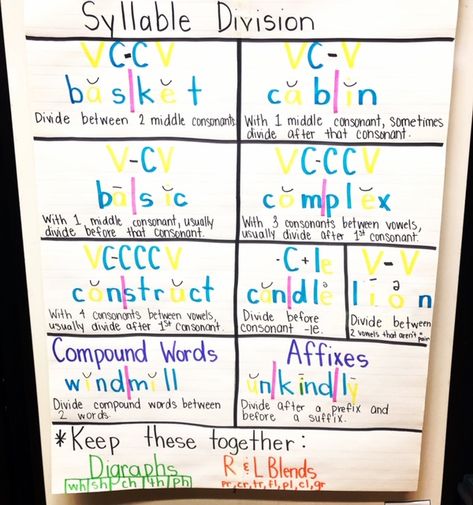 Syllable Division
VC-CV
băs|kĕt
Divide between 2 middle consonants.
VC-V
căb|ĭn
With 1 middle consonant, sometimes
divide after that consonant.
V-CV
bā|sĭc
With 1 middle consonant, usually
divide before that consonant.
VC-CCV
cŏm|plĕx
With 3 consonants between vowels,
usually divide after 1st consonant.
VC-CCCV
cŏn|strŭct
With 4 consonants between vowels,
usually divide after 1st consonant.
-C+le
căn|dle
Divide before
consonant -le.
V-V
lī|on
Divide between
2 vowels that aren't
Compound Words
wĭnd|mĭll
Divide compound words between
2 words.
Affixes
ŭn/kīnd/ly
Divide after a prefix and
before a suffix.
*Keep these together:
Digraphs
wh sh ch th ph
R & L Blends
pr, cr, tr, fl, pl, cl, gr